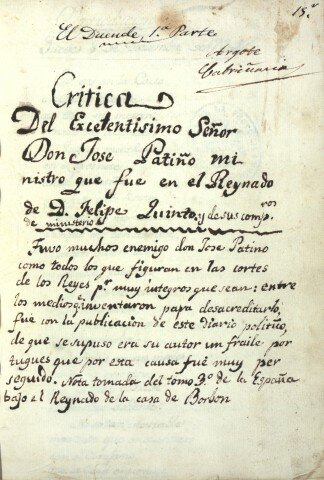 15.
El Duende 1.ª Parte
Argote
Cabriñana
Critica
Del Excelentisimo Señor
Don Jose Patiño mi
nistro que fue en el Reynado
de D. Felipe Quinto, y de sus comp.ros
de ministerio
Tuvo muchos enemigo don Jose Patino
como todos los que figuran en las cortes
de los Reyes p.r muy integros que sean: entre
los medios q.e inventaron para desacreditarlo,
fue con la publicacion de este diario politico,
de que se supuso era su autor un fraile por
tugues que por esta causa fué muy per
seguido. Nota tomada del tomo 3.º de la España
bajo el Reynado de la casa de Borbon